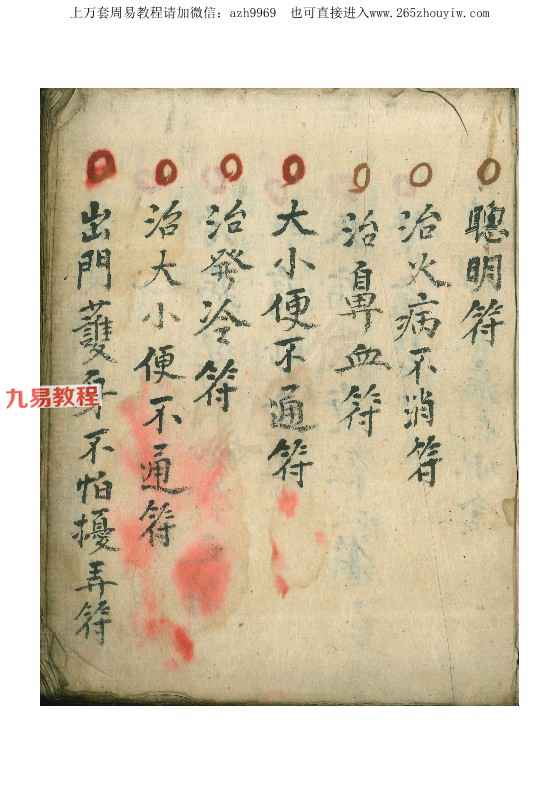 上万套周易教程请加微信：azh9969 也可直接进入www.265zhouyiw.com
聰明符
治火病不消符
治鼻血符
大小便不通符
治發冷符
治大小便不通符
出門護身不怕擾弄符
九易教程